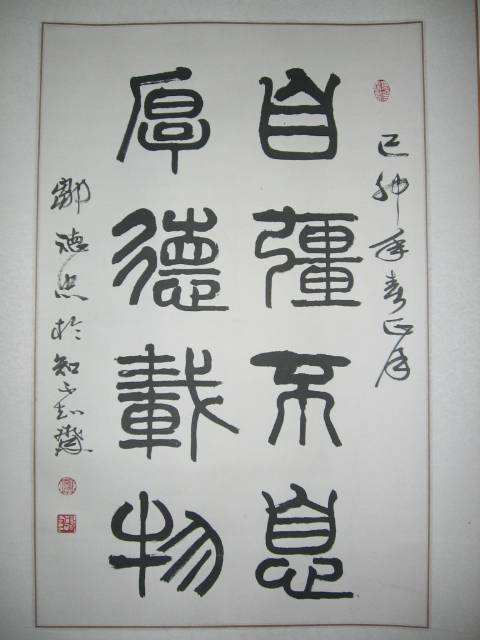 己卯年春正月
自彊不息
厚德載物
德忠於知不知齋